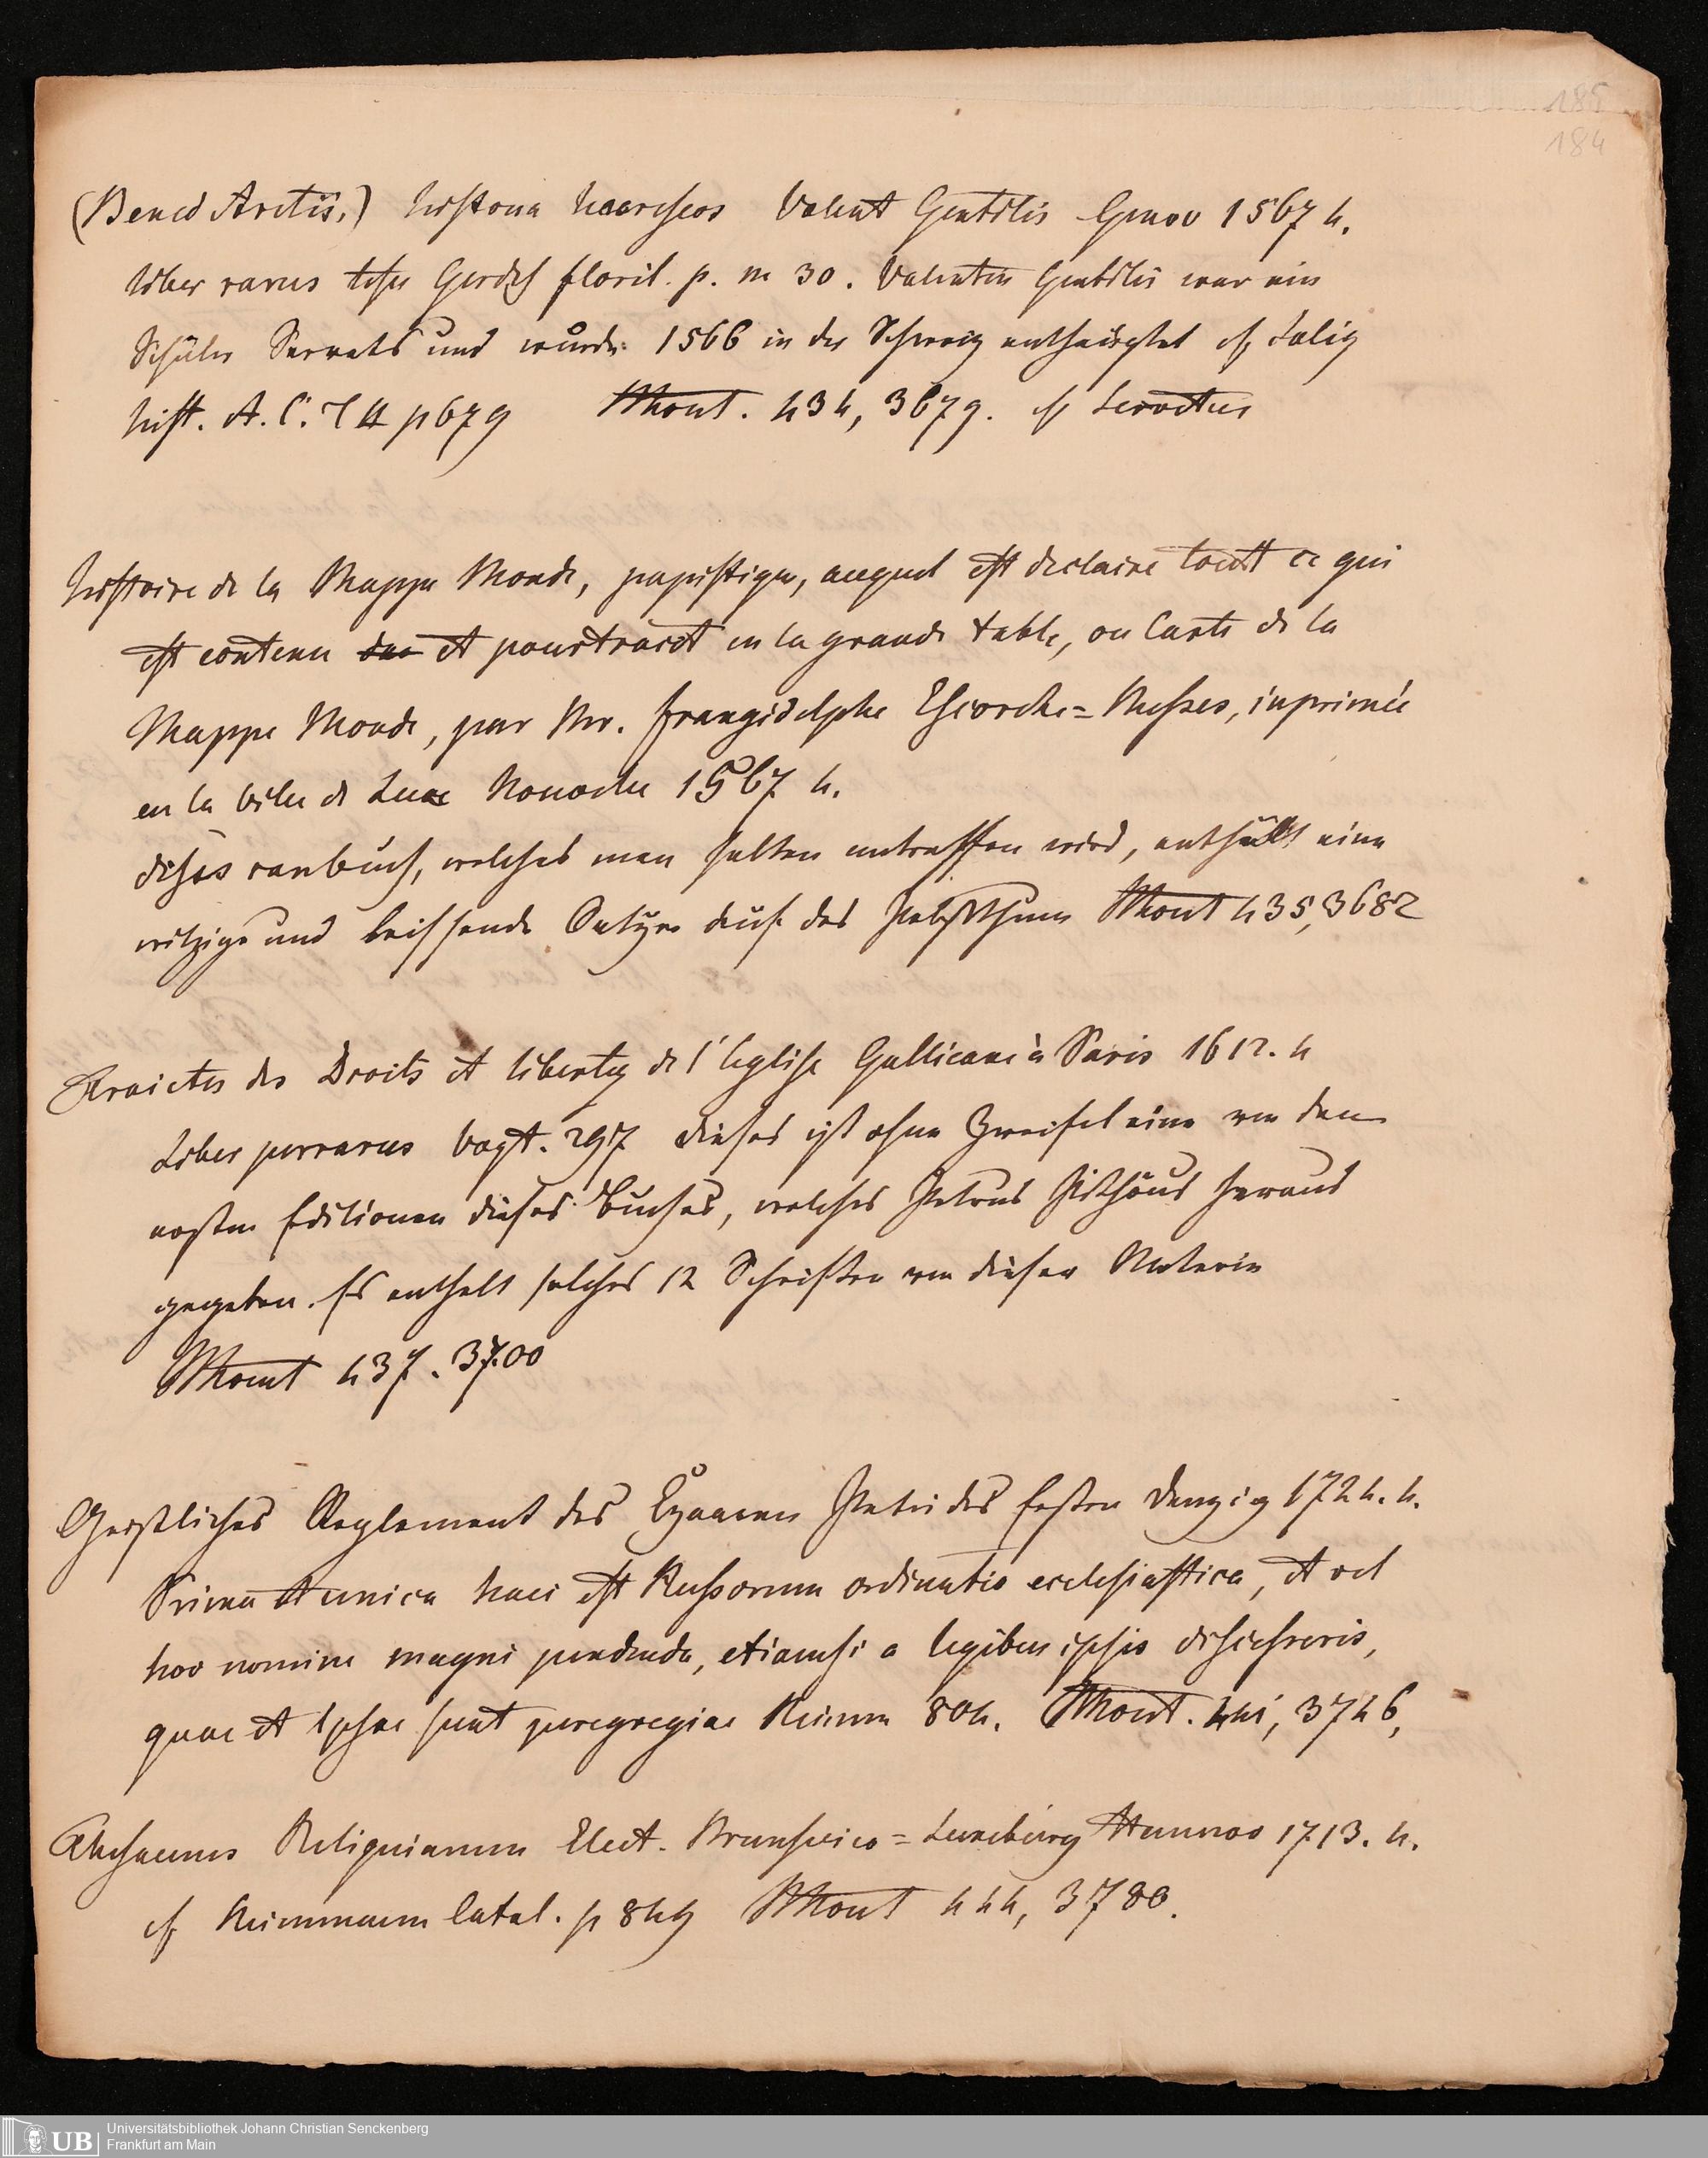 185
184
(Bened Aretii.) historia haereseos Valent Gentilis Genev 1567 4.
liber rarus teste Gerdes floril. p. m 30. Valentin Gentilis war ein
Schüler Servets und wurde 1566 in der Schweiz enthauptet cf Salig
hist. A. C. T II p 679 Mont. 434, 3679. cf Servetus
histoire de la Mappe Monde, papistique, auquel est declaire tout ce qui
est contenu et pourtraict en la grande table, ou Carte de la
Mappe Monde, par Mr. frangidelphe Escorche=Messes, inprimée
en la ville de Luce Nouvelle 1567 4.
dieses rare buch, welches man selten antreffen wird, enthällt eine
witzige und beissende Satyre auf das Pabstthum Mont 435, 3682
Traictes des Droits et libertez de l'eglise Gallicane à Paris 1612. 4
Liber perrarus Vogt. 297 dieses ist ohne Zweifel eine von den
ersten Editionen dieses Buches, welches Petrus Pithöus heraus
gegeben. Es enthelt solches 12 Schriften von dieser Materie
Mont 437. 3700
Geistliches Reglement des Czaaren Petri des Ersten Danzig 1724. 4.
Prima et unica haec est Russorum ordinatio ecclesiastica, et vel
hoc nomine magni pendenda, etiamsi a legibus ipsis discesseris,
quae et ipsae sunt peregregiae Reimm 804. Mont. 441, 3746,
Thesaurus Reliquiarum Elect. Brunsvico=Luneburg Hannov 1713. 4.
cf Reimmann Catal. p 849 Mont 444, 3780.
UB Universitätsbibliothek Johann Christian Senckenberg
Frankfurt am Main